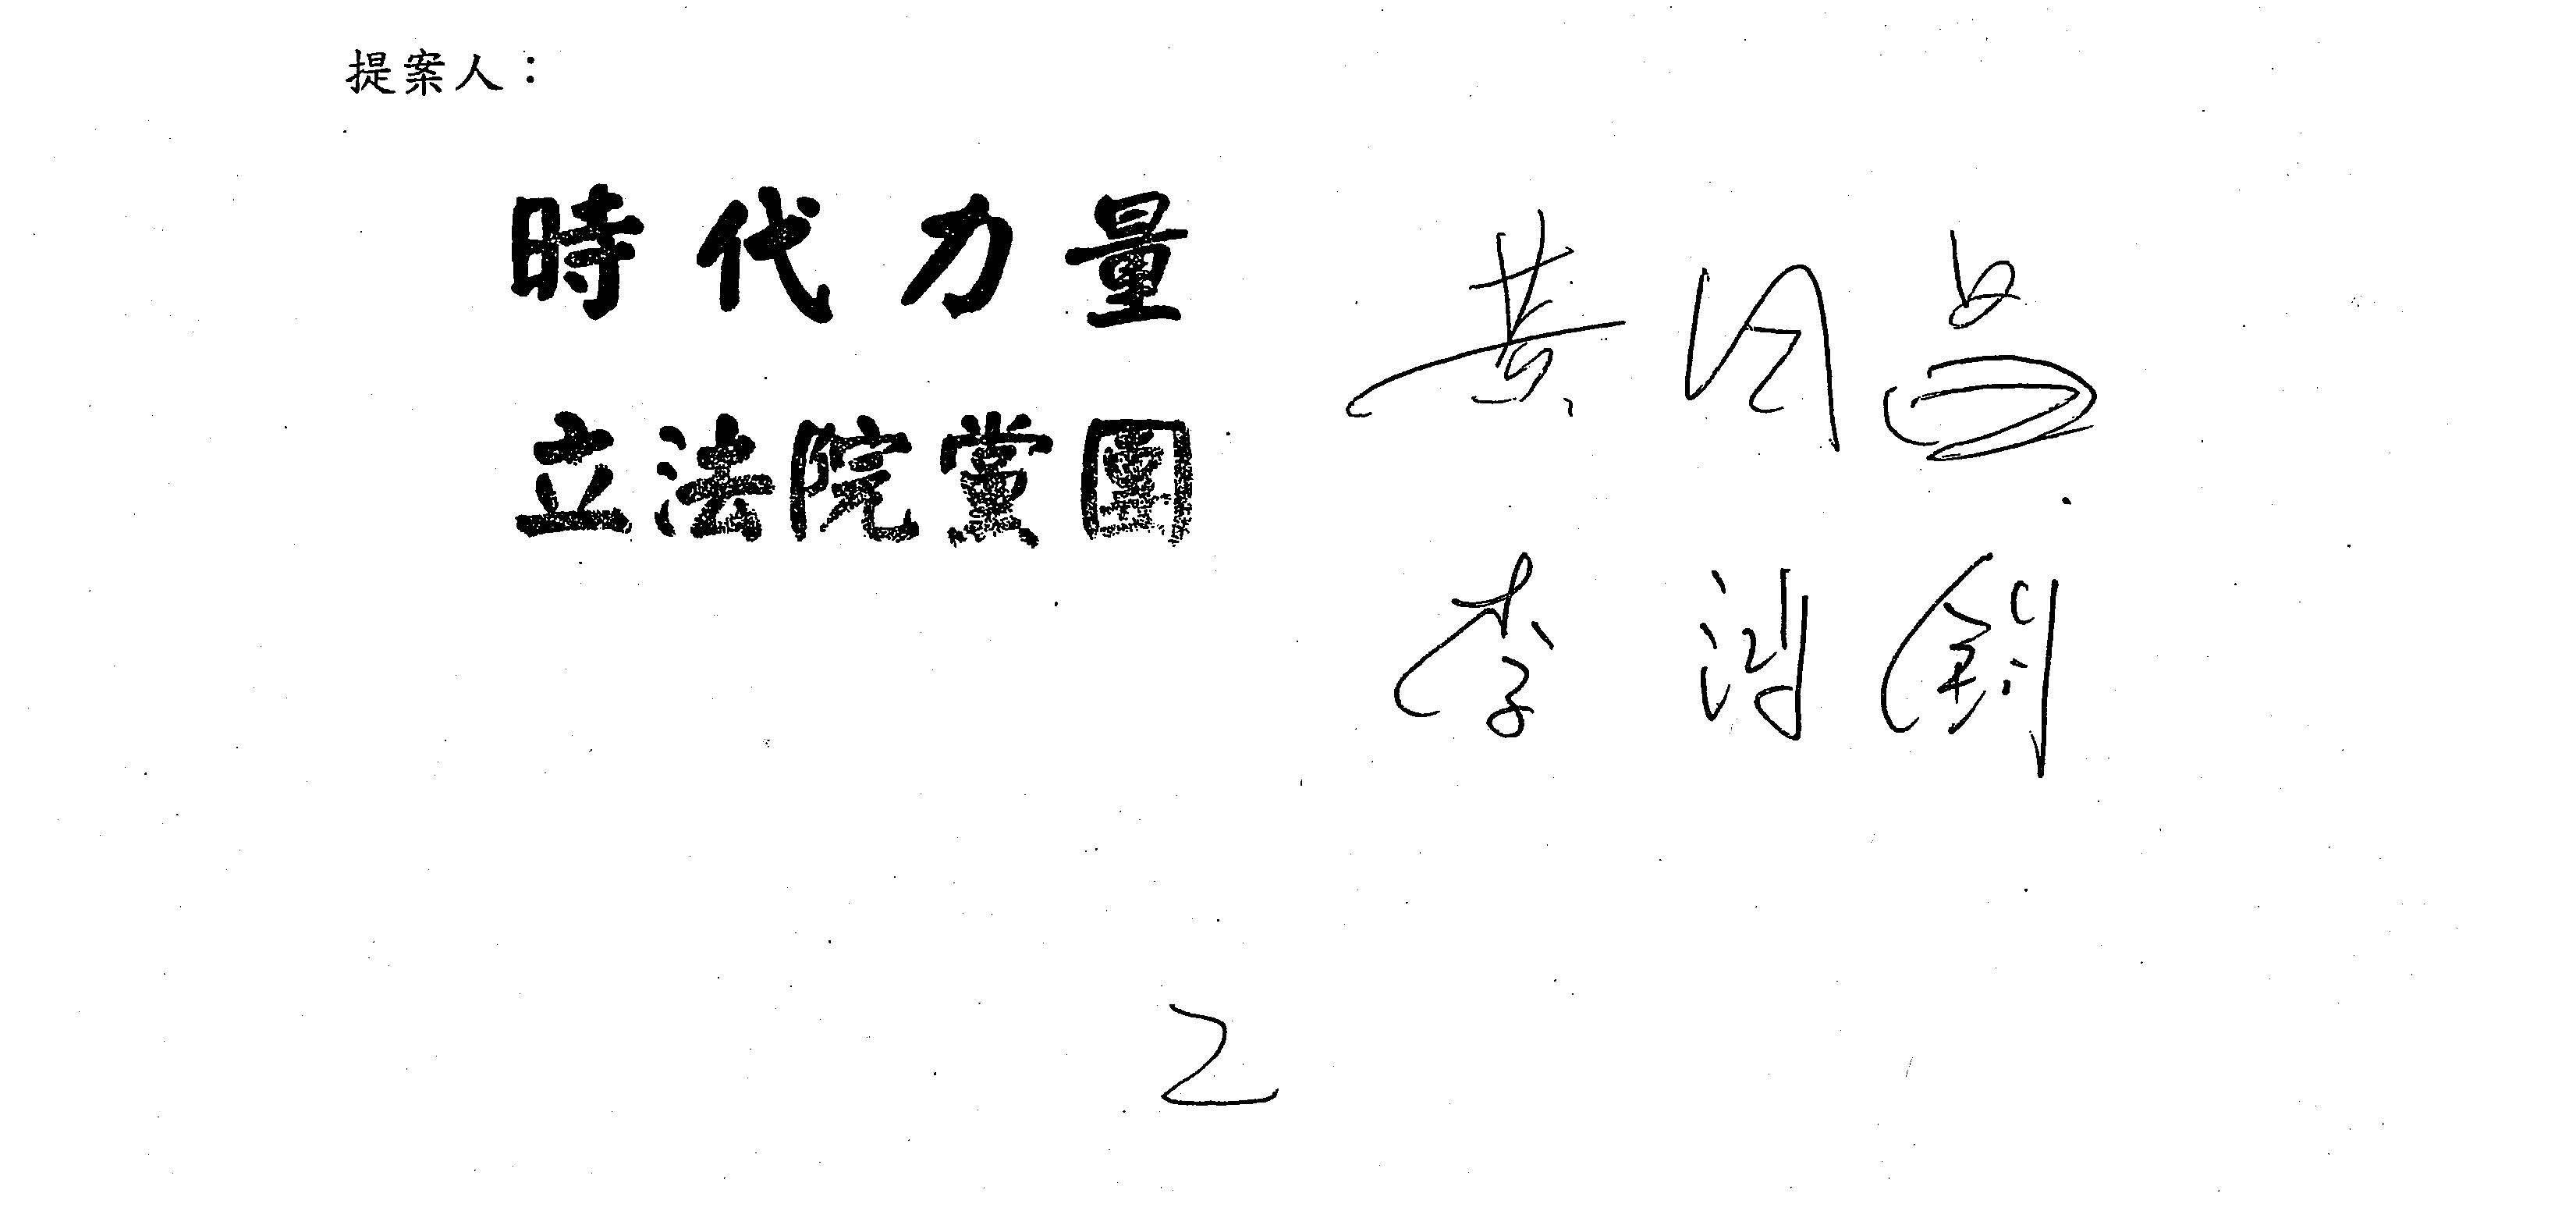 提案人：
時代力量
立法院黨團
黃國昌
李鴻鈞
2